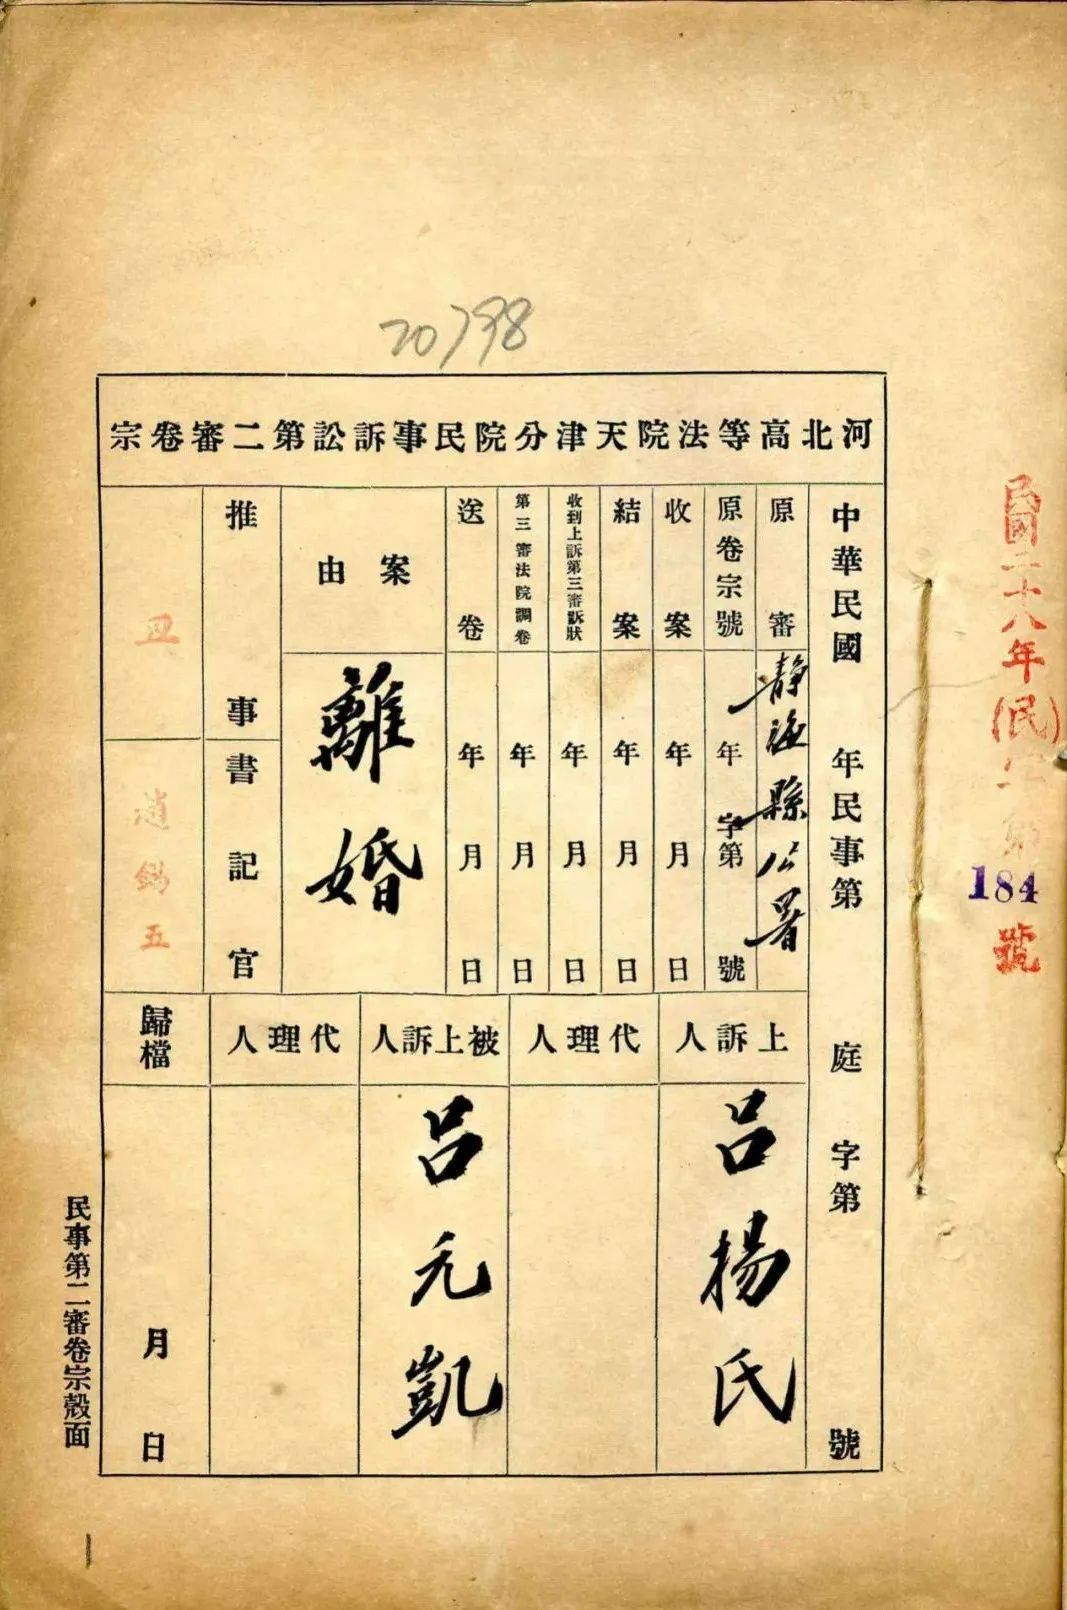 20798
河北高等法院天津分院民事訴訟第二審卷宗
民國二十八年(民)
184
號
中華民國 年民事第 庭 字第 號
原審
靜海縣公署
原卷宗號
年 字第 號
收案
年 月 日
結案
年 月 日
收到上訴第三審訴狀
年 月 日
第三審法院調卷
年 月 日
送卷
年 月 日
案由
離婚
推事
丑
書記官
趙錫五
上訴人
呂楊氏
代理人
被上訴人
呂元凱
代理人
歸檔
月 日
民事第二審卷宗殼面